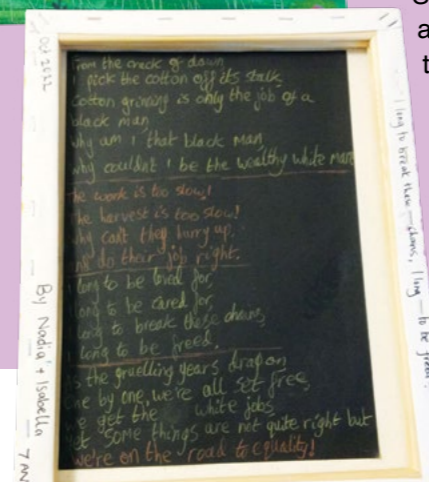 Oct 2022
From the crack of dawn
I pick the cotton off its stalk
Cotton grinning is only the job of a
black man
Why am I that black man
Why couldnt I be the wealthy white man
The work is too slow!
The harvest is too slow!
Why cant they hurry up,
And do their job right.
I long to be loved for,
I long to be cared for,
I long to break these chains,
I long to be freed.
As the gruelling years drag on,
One by one, we're all set free,
We get the white jobs
Yet some things are not quite right but
we're on the road to equality!
By Nadia + Isabella 7AN
I long to break these chains, I long to be freed.
a
t